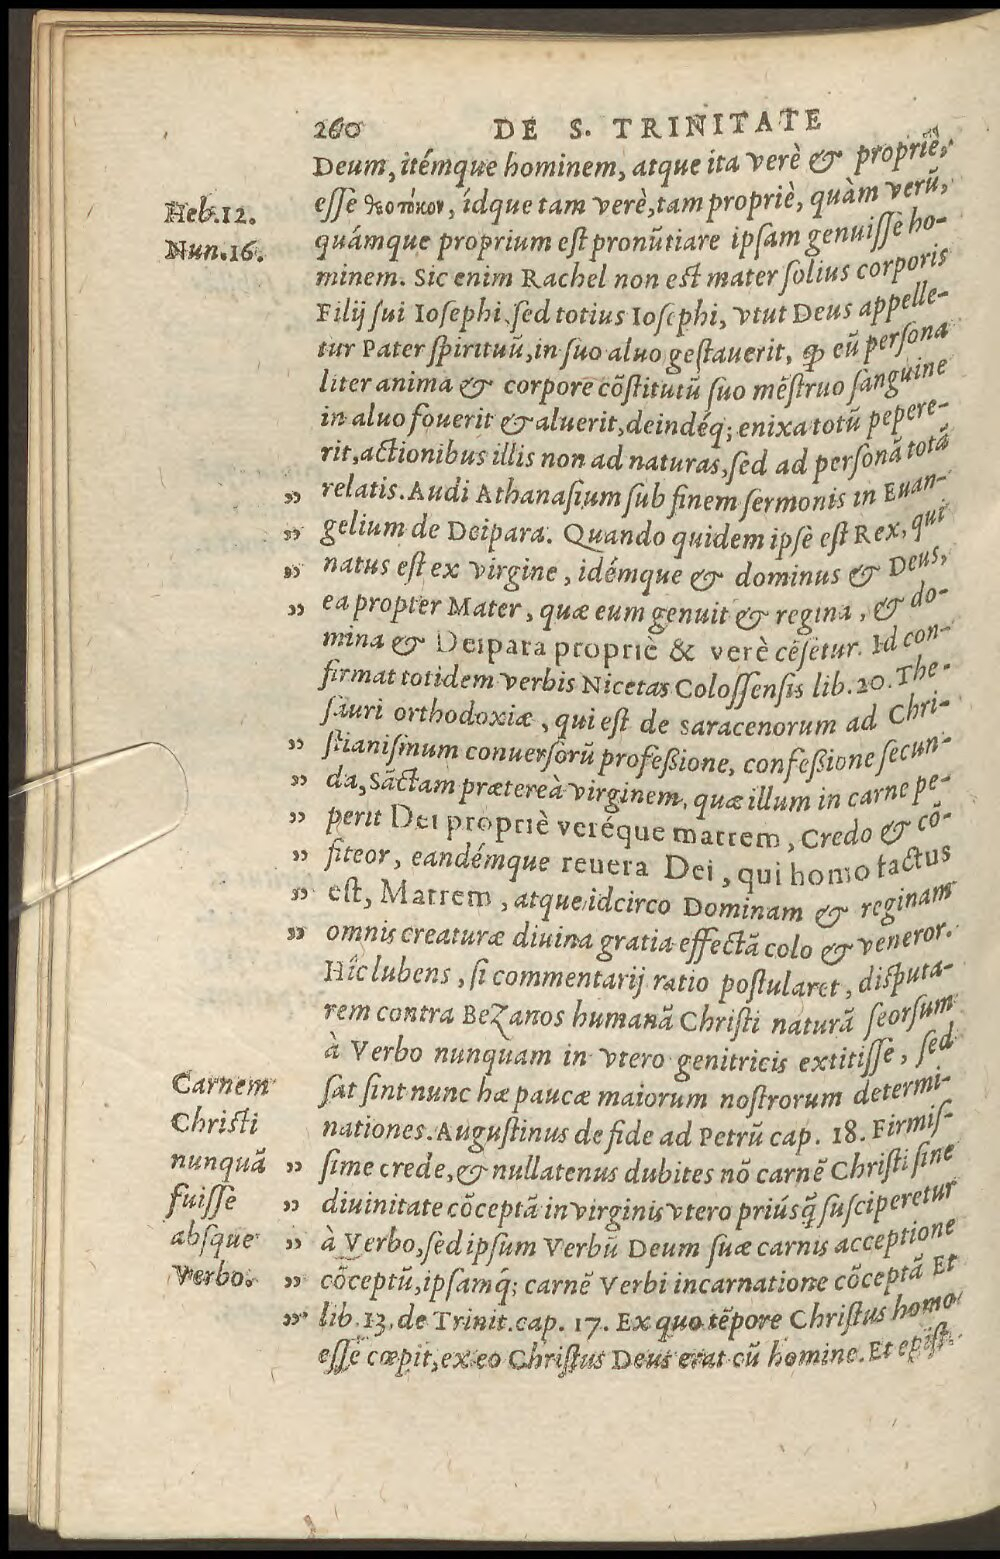 260 DE S. TRINITATE
Deum, itémque hominem, atque ita verè & propriè,
Heb.12.
esse θεοτόκον, ídque tam verè, tam propriè, quàm verũ,
Nun.16.
quámque proprium est pronũtiare ipsam genuisse ho-
minem. Sic enim Rachel non est mater solius corporis
Filij sui Iosephi, sed totius Iosephi, vtut Deus appelle-
tur Pater spirituũ, in suo aluo gestauerit, ꝙ eũ persona
liter anima & corpore cõstitutũ suo mẽstruo sanguine
in aluo fouerit & aluerit, deindéq; enixa totũ pepere-
rit, actionibus illis non ad naturas, sed ad personã totã
„ relatis. Audi Athanasium sub finem sermonis in Euan-
„ gelium de Deipara. Quando quidem ipse est Rex, qui
„ natus est ex virgine, idémque & dominus & Deus,
„ ea propter Mater, quæ eum genuit & regina, & do-
mina & Deipara propriè & verè cẽsetur. Id con-
firmat totidem verbis Nicetas Colossensis lib. 20. The-
sauri orthodoxiæ, qui est de saracenorum ad Chri-
„ stianismum conuersorũ professione, confessione secun-
„ da, Sãctam prætereà virginem, quæ illum in carne pe-
„ perit Dei propriè veréque matrem, Credo & cõ-
„ fiteor, eandémque reuera Dei, qui homo factus
„ est, Matrem, atque idcirco Dominam & reginam
„ omnis creaturæ diuina gratia effectã colo & veneror.
Hîc lubens, si commentarij ratio postularet, disputa-
rem contra Bezanos humanã Christi naturã seorsum
à Verbo nunquam in vtero genitricis extitisse, sed
Carnem
sat sint nunc hæ paucæ maiorum nostrorum determi-
Christi
nationes. Augustinus de fide ad Petrũ cap. 18. Firmis-
nunquã
„ sime crede, & nullatenus dubites nõ carnẽ Christi sine
fuisse
„ diuinitate cõceptã in virginis vtero priúsq̃ susciperetur
absque
„ à Verbo, sed ipsum Verbũ Deum suæ carnis acceptione
Verbo.
„ cõceptũ, ipsamq́; carnẽ Verbi incarnatione cõceptã Et
„ lib. 13. de Trinit. cap. 17. Ex quo tẽpore Christus homo
esse cœpit, ex eo Christus Deus erat cũ homine. Et epist.